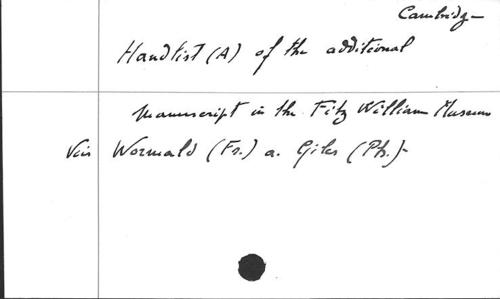 Cambridge
Handlist (A) of the additional
Manuscript in the Fitz William Museum
Voir Wormald (Fr.) a. Giles (Ph.)-